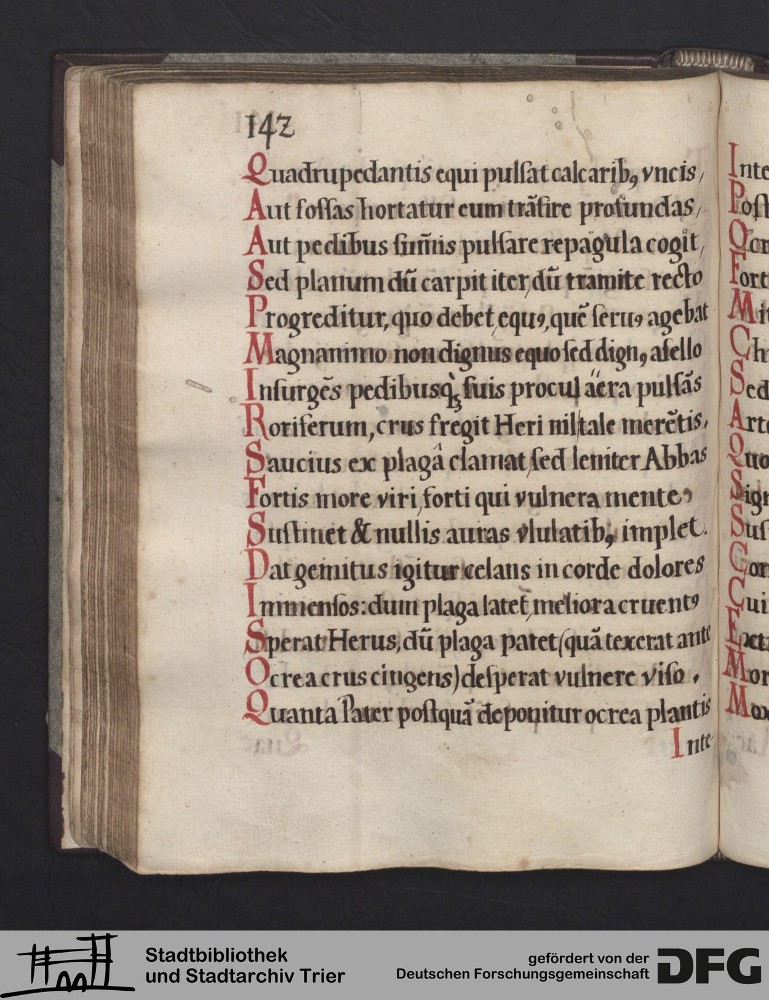 142
Quadrupedantis equi pulsat calcarib₉ vncis,
Aut fossas hortatur eum trãsire profundas,
Aut pedibus sum̃is pulsare repagula cogit,
Sed planum dũ carpit iter, dũ tramite recto
Progreditur, quo debet equ₉, quẽ seru₉ agebat
Magnanimo non dignus equo sed dign₉ asello
Insurgẽs pedibusq̃ suis procul äera pulsãs
Roriferum, crus fregit Heri nil tale merẽtis.
Saucius ex plagâ clamat, sed leniter Abbas
Fortis more viri, forti qui vulnera mente
Sustinet & nullis auras vlulatib₉ implet.
Dat gemitus igitur celans in corde dolores
Immensos: dum plaga latet, meliora cruent₉
Sperat Herus, dũ plaga patet (quã texerat ante
Ocrea crus cingens) desperat vulnere viso.
Quanta Pater postquã deponitur ocrea plantis
Inte
Inte
Post
Fort
Mi
Ch
Sed
Arte
Quo
Sign
Sus
Cui
Mor
Mox
Stadtbibliothek
und Stadtarchiv Trier
gefördert von der
Deutschen Forschungsgemeinschaft
DFG